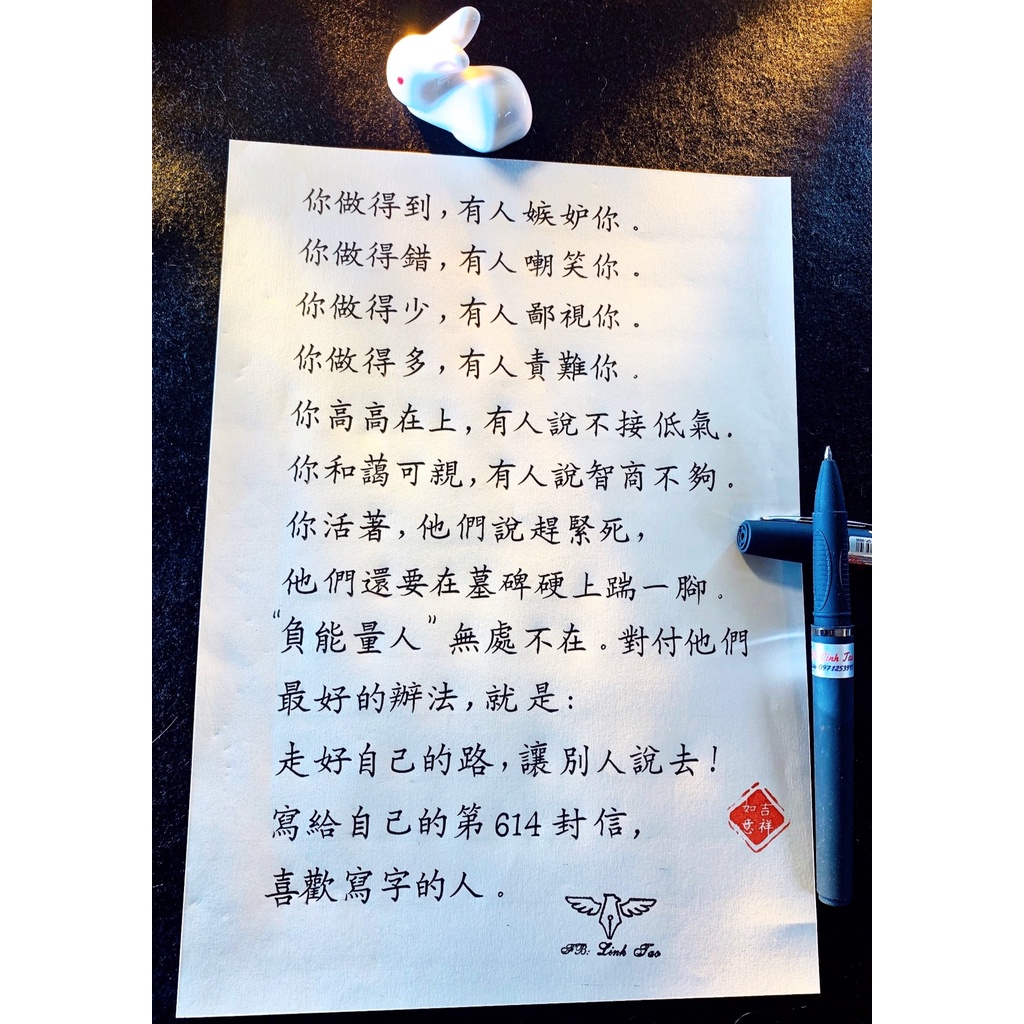 你做得到，有人嫉妒你。
你做得錯，有人嘲笑你。
你做得少，有人鄙視你。
你做得多，有人責難你。
你高高在上，有人說不接低氣.
你和藹可親，有人說智商不夠.
你活著，他們說趕緊死，
他們還要在墓碑硬上踹一腳。
“負能量人”無處不在。對付他們
最好的辦法，就是：
走好自己的路，讓別人說去！
寫給自己的第614封信，
喜歡寫字的人。
吉祥
如意
FB: Linh Tao
Linh Tao